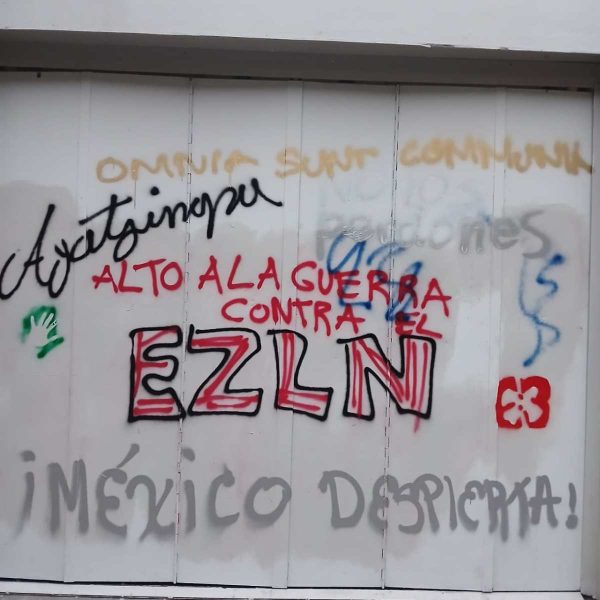 OMNIA SUNT COMMUNIA
No nos
perdones
Ayotzinapa
ALTO A LA GUERRA
CONTRA EL
EZLN
¡MÉXICO DESPIERTA!